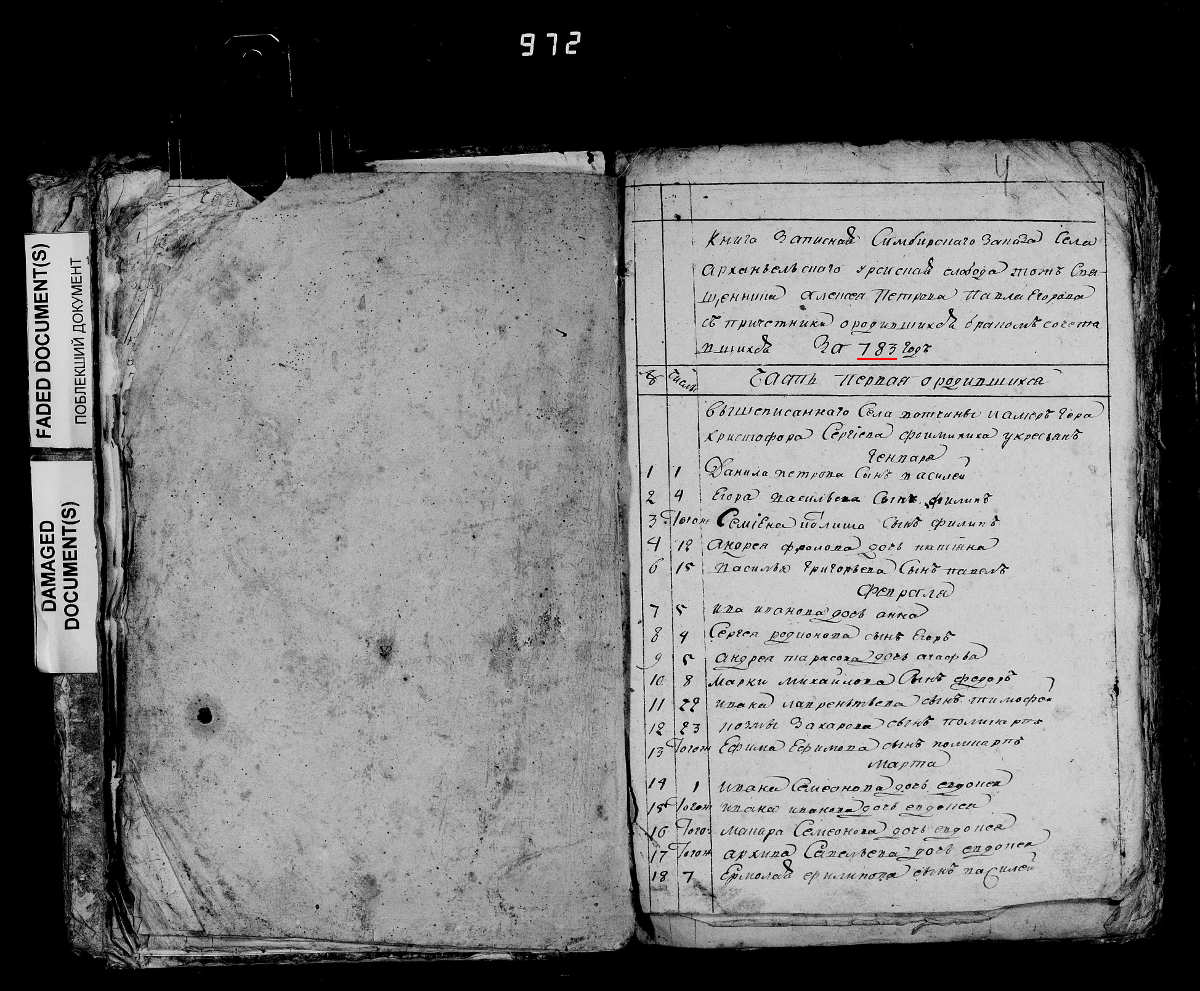 972
FADED DOCUMENT(S)
ПОБЛЕКШИЙ ДОКУМЕНТ
DAMAGED
DOCUMENT(S)
4
Книга Записная Симбирского Села
Архангельского слобода тожъ Свя-
щенника Алексея Петрова Павла Егорова
съ причетники о родившихся бракомъ сочета
вшихся За 783 годъ
Числы Часть первая о родившихся
вышеписаннаго Села вотчины
Христофора Сергіева у крестьянъ
Генваря
1 1 Данила петрова сынъ василей
2 4 Егора васильева сынъ филипъ
3 Тогож Семіона сынъ филипъ
4 12 андрея фролова дочь
6 15 василья григорьева сынъ павелъ
Февраля
7 5 ива иванова дочь анна
8 4 Сергея родионова сынъ Егоръ
9 5 андрея тарасова дочь
10 8 марки михайлова сынъ федоръ
11 22 ивана лаврентьева сынъ тимофей
12 23 Захарова сынъ поликарпъ
13 Тогож Ефима Ефимова сынъ поликарпъ
марта
14 1 ивана Семеонова дочь евдокея
15 Тогож ивана иванова дочь евдокея
16 Тогож макара Семеонова дочь евдокея
17 Тогож архипа Савельева дочь евдокея
18 7 Ермолая филипова сынъ василей